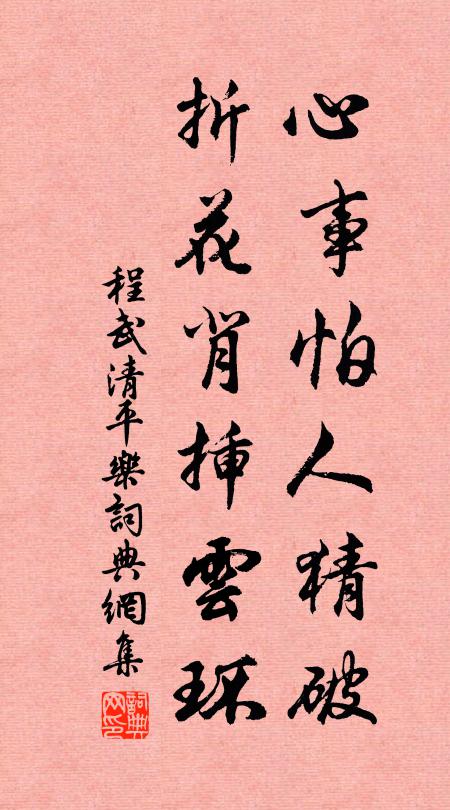 心事怕人猜破
折花背插雲環
程武清平樂詞典網集
詞典網印